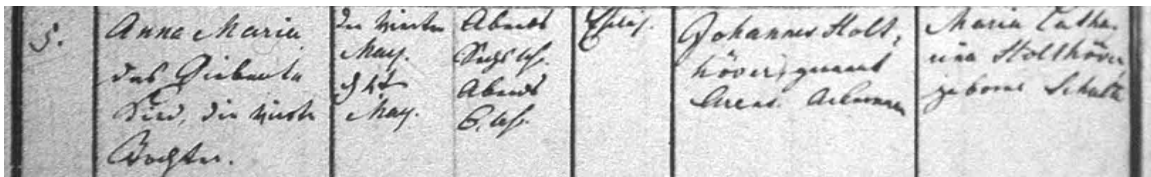 5.
Anna Maria
das Siebente
Kind, die vierte
Tochter.
Den vierten
May.
d 4t
May.
Abends
Sechs Uhr.
Abends
6. Uhr.
Ehelich.
Johannes Holt,
höver, genant
Arens. Ackersmann
Maria Catha,
rina Holthöver,
geborne Schulte